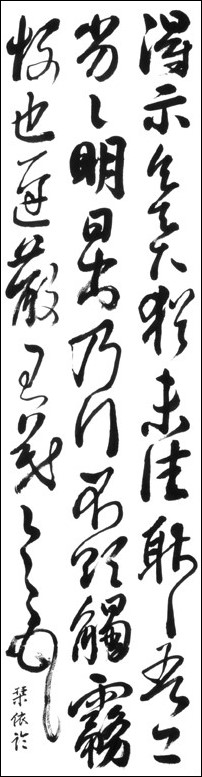 得示知足下猶未佳耿〻吾亦
劣〻明日出乃行不欲觸霧
故也遲散王羲之頓首